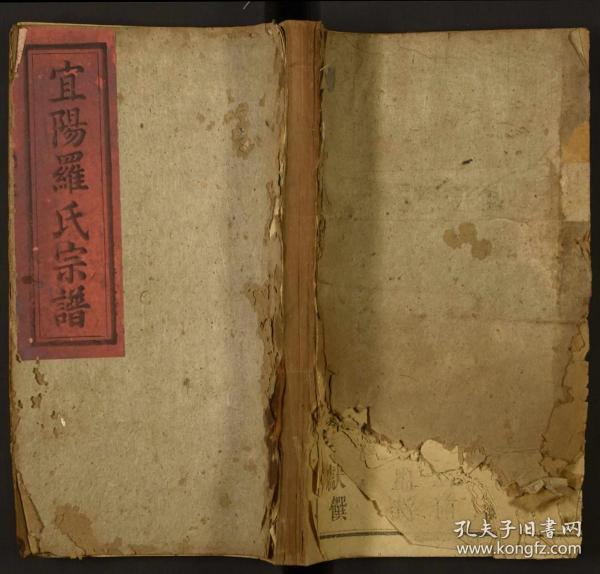 宜陽羅氏宗譜
獻饌
孔夫子旧書网
www.kongfz.com